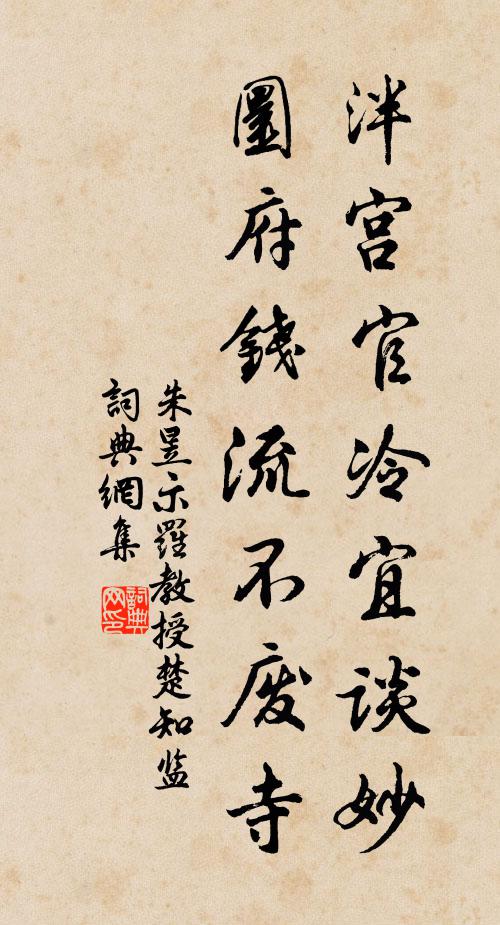 泮宫官冷宜談妙
圜府錢流不废寺
朱昱示羅教授楚知监
詞典網集
詞典网印